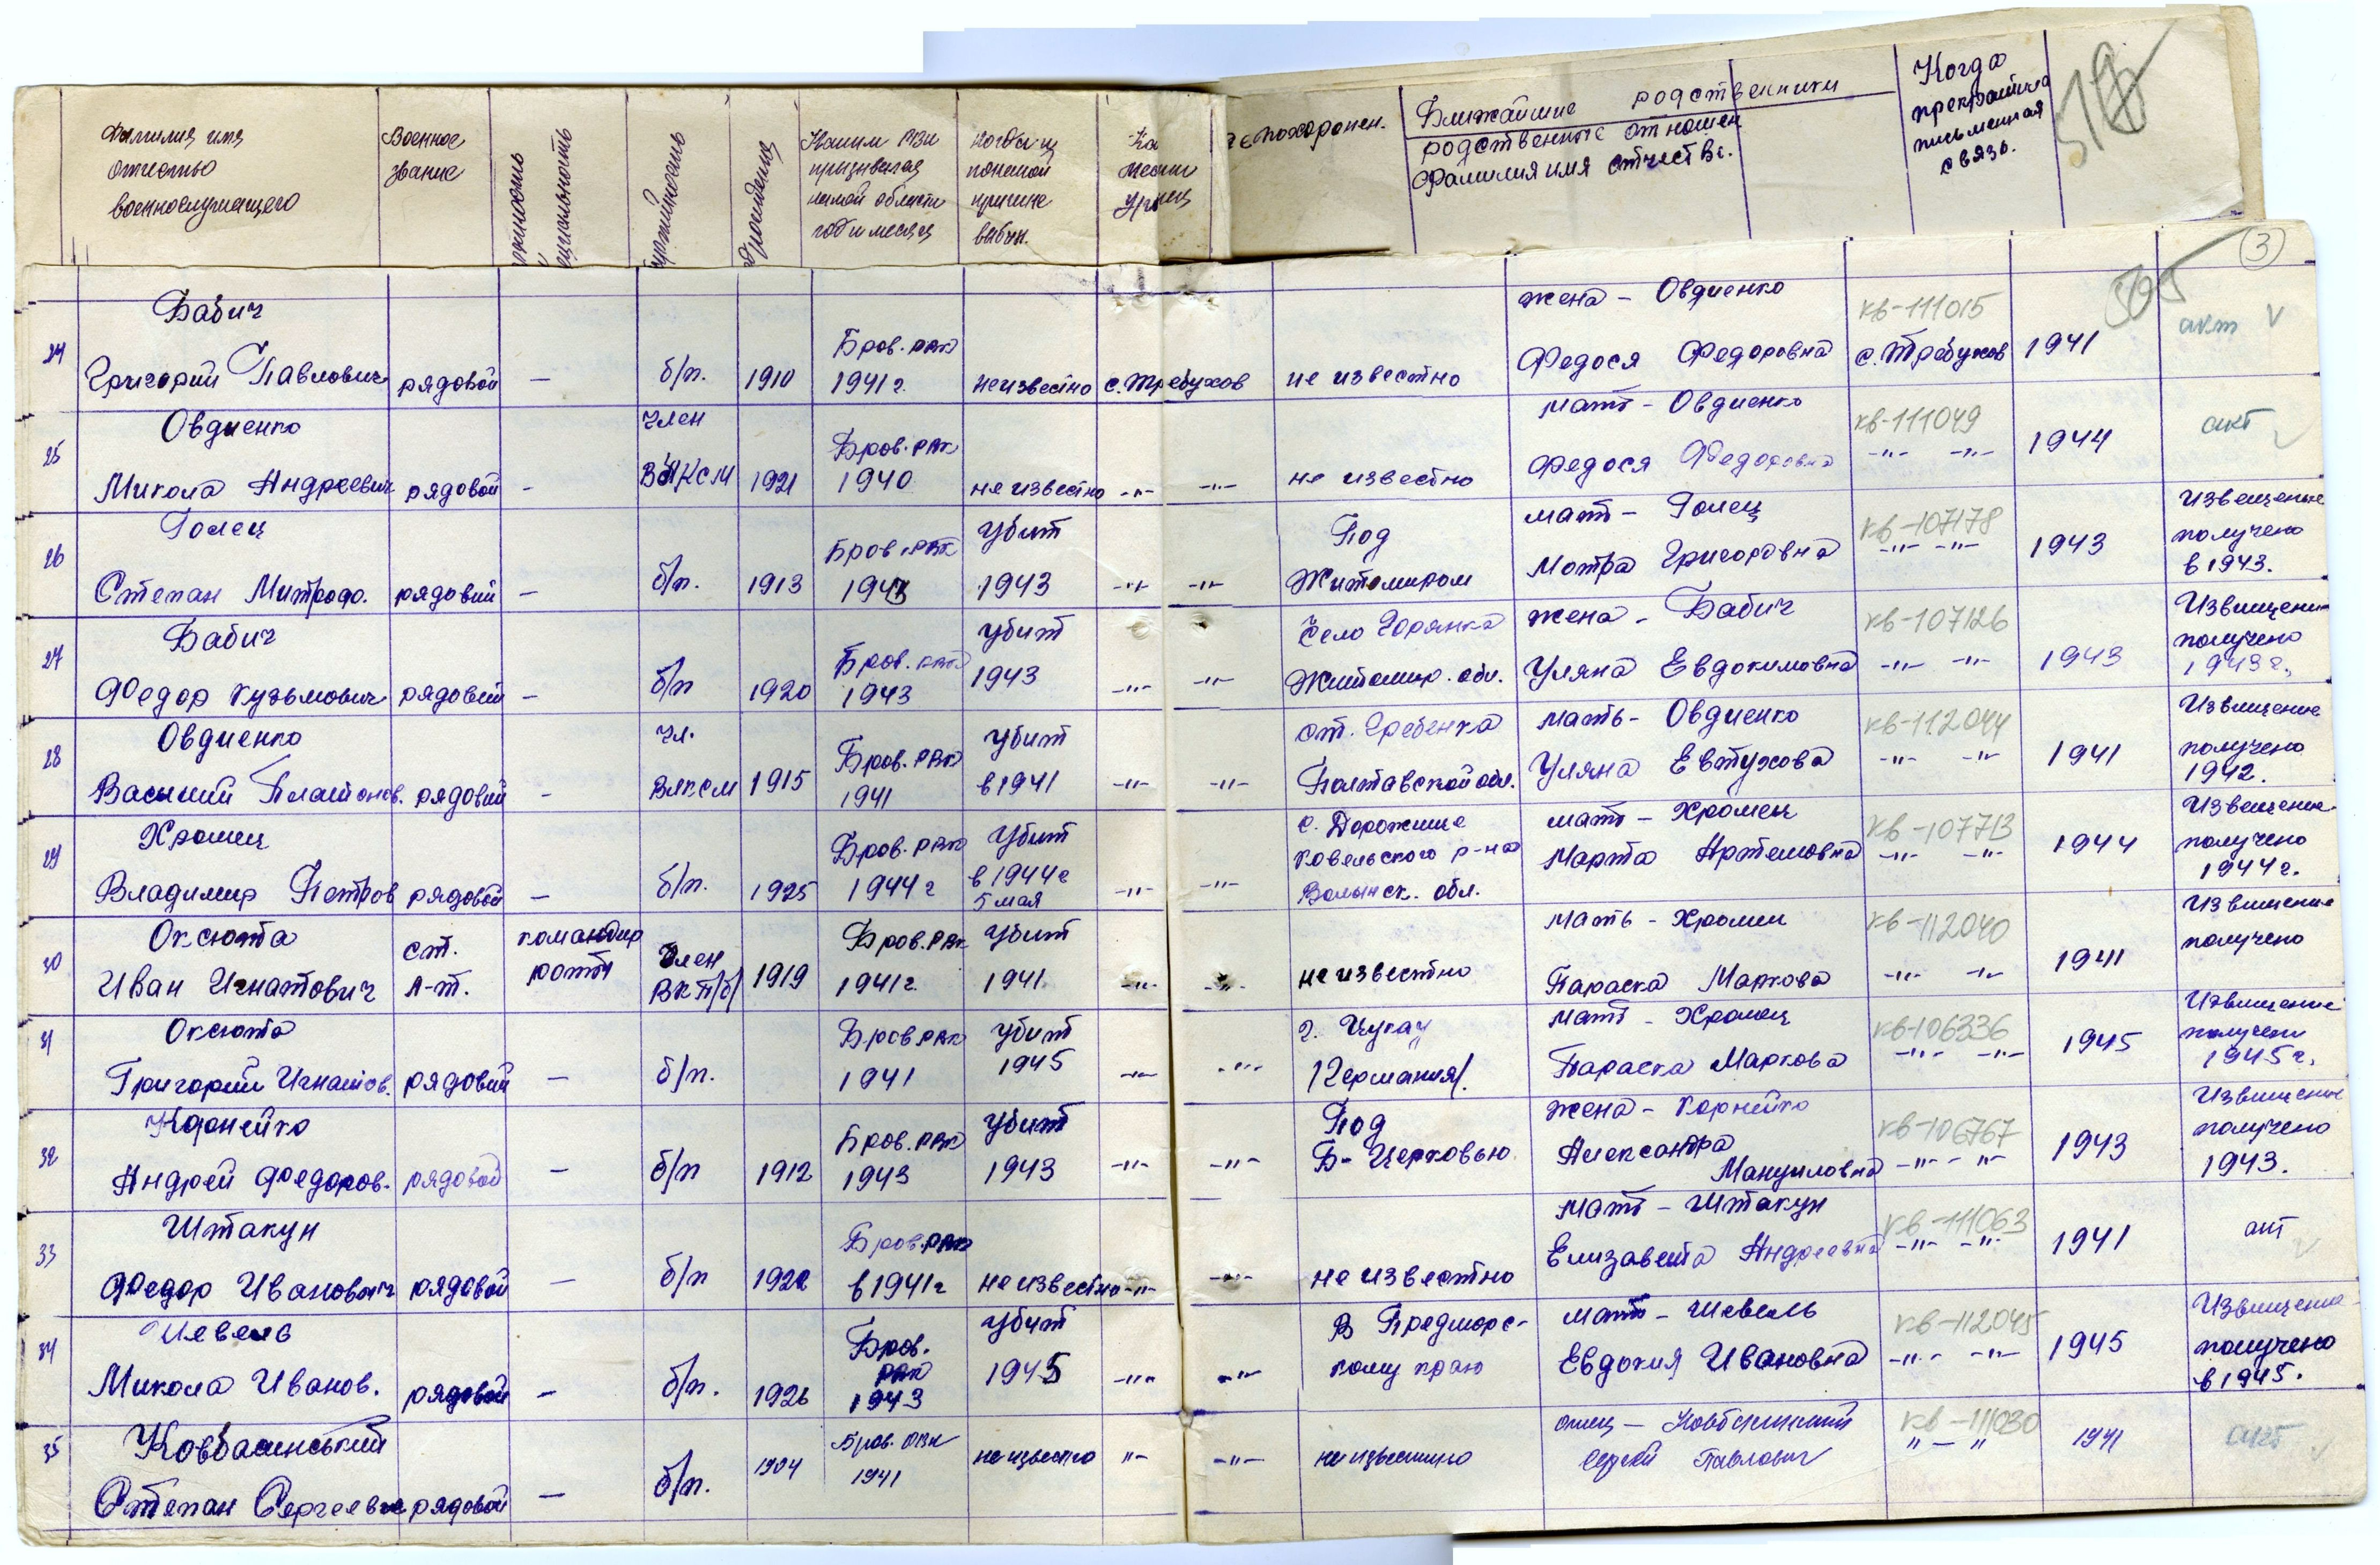 Фамилия имя
отчество
военнослужащего
Военное
звание
Каким РВК
призывался
какой области
год и месяц
Когда и
по какой
причине
выбыл.
Ка
места
урожец
де похоронен.
Ближайшие родственники
родственные отношен
фамилия имя отчество.
Когда
прекратилась
письменная
связь.
3
24
Бабич
Григорий Павлович
рядовой
—
б/п.
1910
Бров. РВК
1941 г.
неизвестно
с. Требухов
не известно
жена - Овдиенко
Федося Федоровна
кв-111015
с. Требухов
1941
акт
25
Овдиенко
Микола Андреевич
рядовой
-
член
ВЛКСМ
1921
Бров. РВК
1940
не известно
-"-
-"-
не известно
мать - Овдиенко
Федося Федоровна
кв-111049
-"- -"-
1944
акт
26
Голец
Степан Митрофо.
рядовий
-
б/п.
1913
Бров. РВК
1943
Убит
1943
-"-
-"-
Под
Житомиром
мать - Голец
Мотра Григоровна
кв-107178
-"- -"-
1943
Извещение
получено
в 1943.
27
Бабич
Федор Кузьмович
рядовий
-
б/п
1920
Бров. РВК
1943
Убит
1943
-"-
-"-
Село Горянка
Житомир. обл.
жена - Бабич
Уляна Евдокимовна
кв-107126
-"- -"-
1943
Извищени
получено
1943 г.
28
Овдиенко
Василий Платонов.
рядовий
-
чл.
ВЛКСМ
1915
Бров. РВК
1941
Убит
в 1941
-"-
-"-
ст. Гребенка
Полтавской обл.
мать - Овдиенко
Уляна Евтухова
кв-112044
-"- -"-
1941
Извищение
получено
1942.
29
Хромец
Владимир Петров
рядовой
-
б/п.
1925
Бров. РВК
1944 г
Убит
в 1944 г
5 мая
-"-
-"-
с. Дорожище
Ковельского р-на
Волынск. обл.
мать - Хромец
Марта Артемовна
кв-107713
-"- -"-
1944
Извещение
получено
1944 г.
30
Оксюта
Иван Игнатович
ст.
л-т.
командир
роты
Член
ВКП/б/
1919
Бров. РВК
1941 г.
Убит
1941.
-"-
-"-
не известно
мать - Хромец
Параска Маркова
кв-112040
-"- -"-
1941
Извищение
получено
31
Оксюта
Григорий Игнатов.
рядовий
-
б/п.
Бров РВК
1941
Убит
1945
-"-
-"-
г. Цукау
/Германия/.
мать - Хромец
Параска Маркова
кв-106336
-"- -"-
1945
Извищение
получен
1945 г.
32
Корнейко
Андрей Федоров.
рядовой
-
б/п
1912
Бров. РВК
1943
Убит
1943
-"-
-"-
Под
Б-Церковью
жена - Корнейко
Александра
Мануиловна
кв-106767
-"- -"-
1943
Извищение
получено
1943.
33
Штакун
Федор Иванович
рядовой
-
б/п
1922
Бров. РВК
в 1941 г
не известно
-"-
-"-
не известно
мать - Штакун
Елизавета Андреевна
кв-111063
-"- -"-
1941
акт
34
Шевель
Микола Иванов.
рядовой
-
б/п.
1926
Бров.
РВК
1943
Убит
1945
-"-
-"-
В Предморс-
кому краю
мать - Шевель
Евдокия Ивановна
кв-112045
-"- -"-
1945
Извищение
получено
в 1945.
35
Ковбасинський
Степан Сергеевич
рядовой
—
б/п.
1904
Бров. РВК
1941
не известно
"-
-"-
не известно
отец - Ковбасинский
Сергей Павлович
кв-111030
"-"
1941
акт